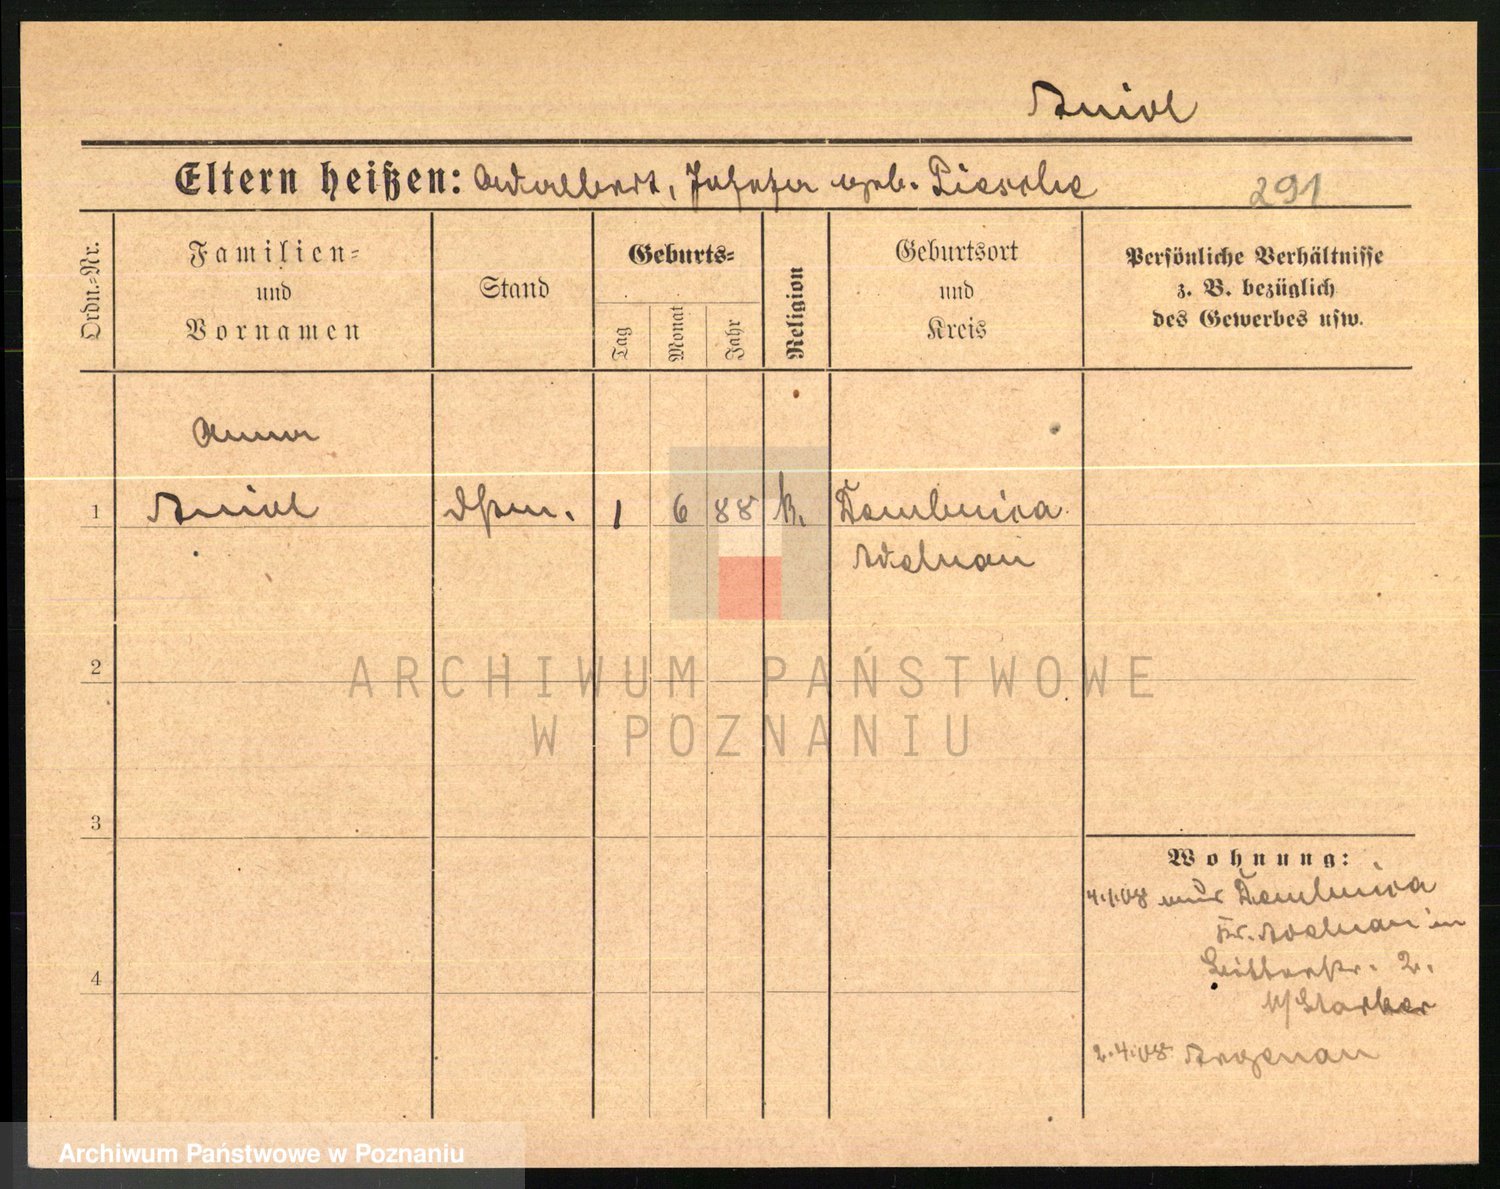 Aniol
Eltern heißen: Adalbert, Josefa geb. Piescke
291
Ordn.-Nr.
Familien-
und
Vornamen
Stand
Geburts-
Tag
Monat
Jahr
Religion
Geburtsort
und
Kreis
Persönliche Verhältnisse
z. B. bezüglich
des Gewerbes usw.
Anna
1 Aniol 1 6 88 k. Dembnica
Adelnau
2
ARCHIWUM PAŃSTWOWE
W POZNANIU
3
Wohnung:
4.1.08 aus Dembnica
Kr. Adelnau in
Ritterstr. 2.
4
2.4.08 Argenau
Archiwum Państwowe w Poznaniu